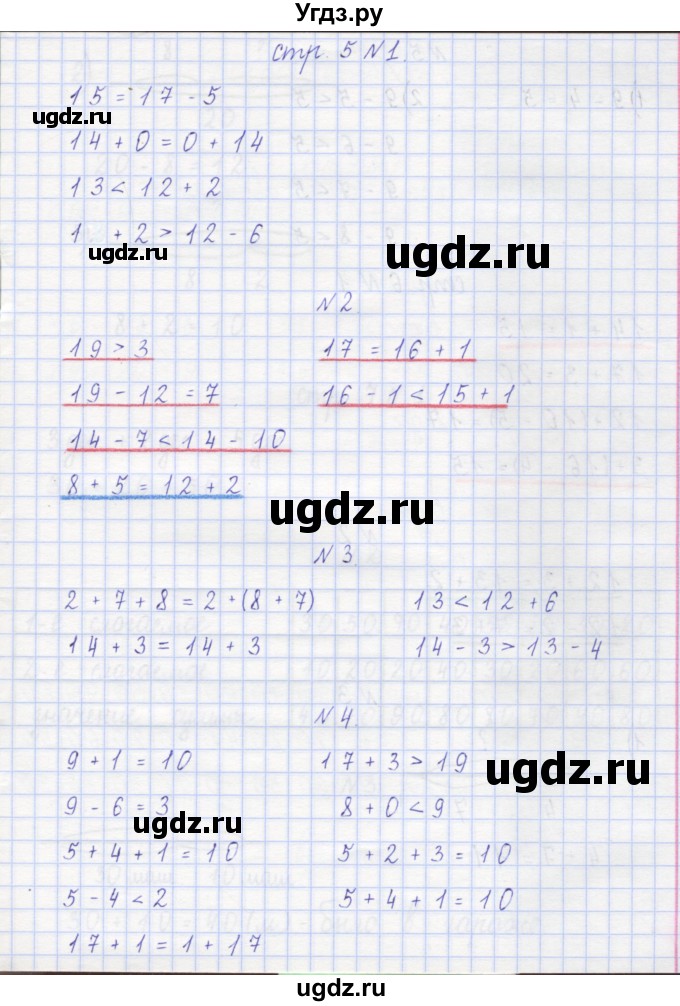 Угдз.ру
стр. 5 N1.
15 = 17 - 5
ugdz.ru
14 + 0 = 0 + 14
13 < 12 + 2
1 + 2 > 12 - 6
ugdz.ru
ugdz.ru
N2
19 > 3
17 = 16 + 1
19 - 12 = 7
16 - 1 < 15 + 1
14 - 7 < 14 - 10
8 + 5 = 12 + 2
ugdz.ru
N 3.
2 + 7 + 8 = 2 + (8 + 7)
13 < 12 + 6
14 + 3 = 14 + 3
14 - 3 > 13 - 4
ugdz.ru
N 4.
9 + 1 = 10
17 + 3 > 19
ugdz.ru
9 - 6 = 3
8 + 0 < 9
ugdz.ru
5 + 4 + 1 = 10
5 + 2 + 3 = 10
5 - 4 < 2
5 + 4 + 1 = 10
17 + 1 = 1 + 17
ugdz.ru